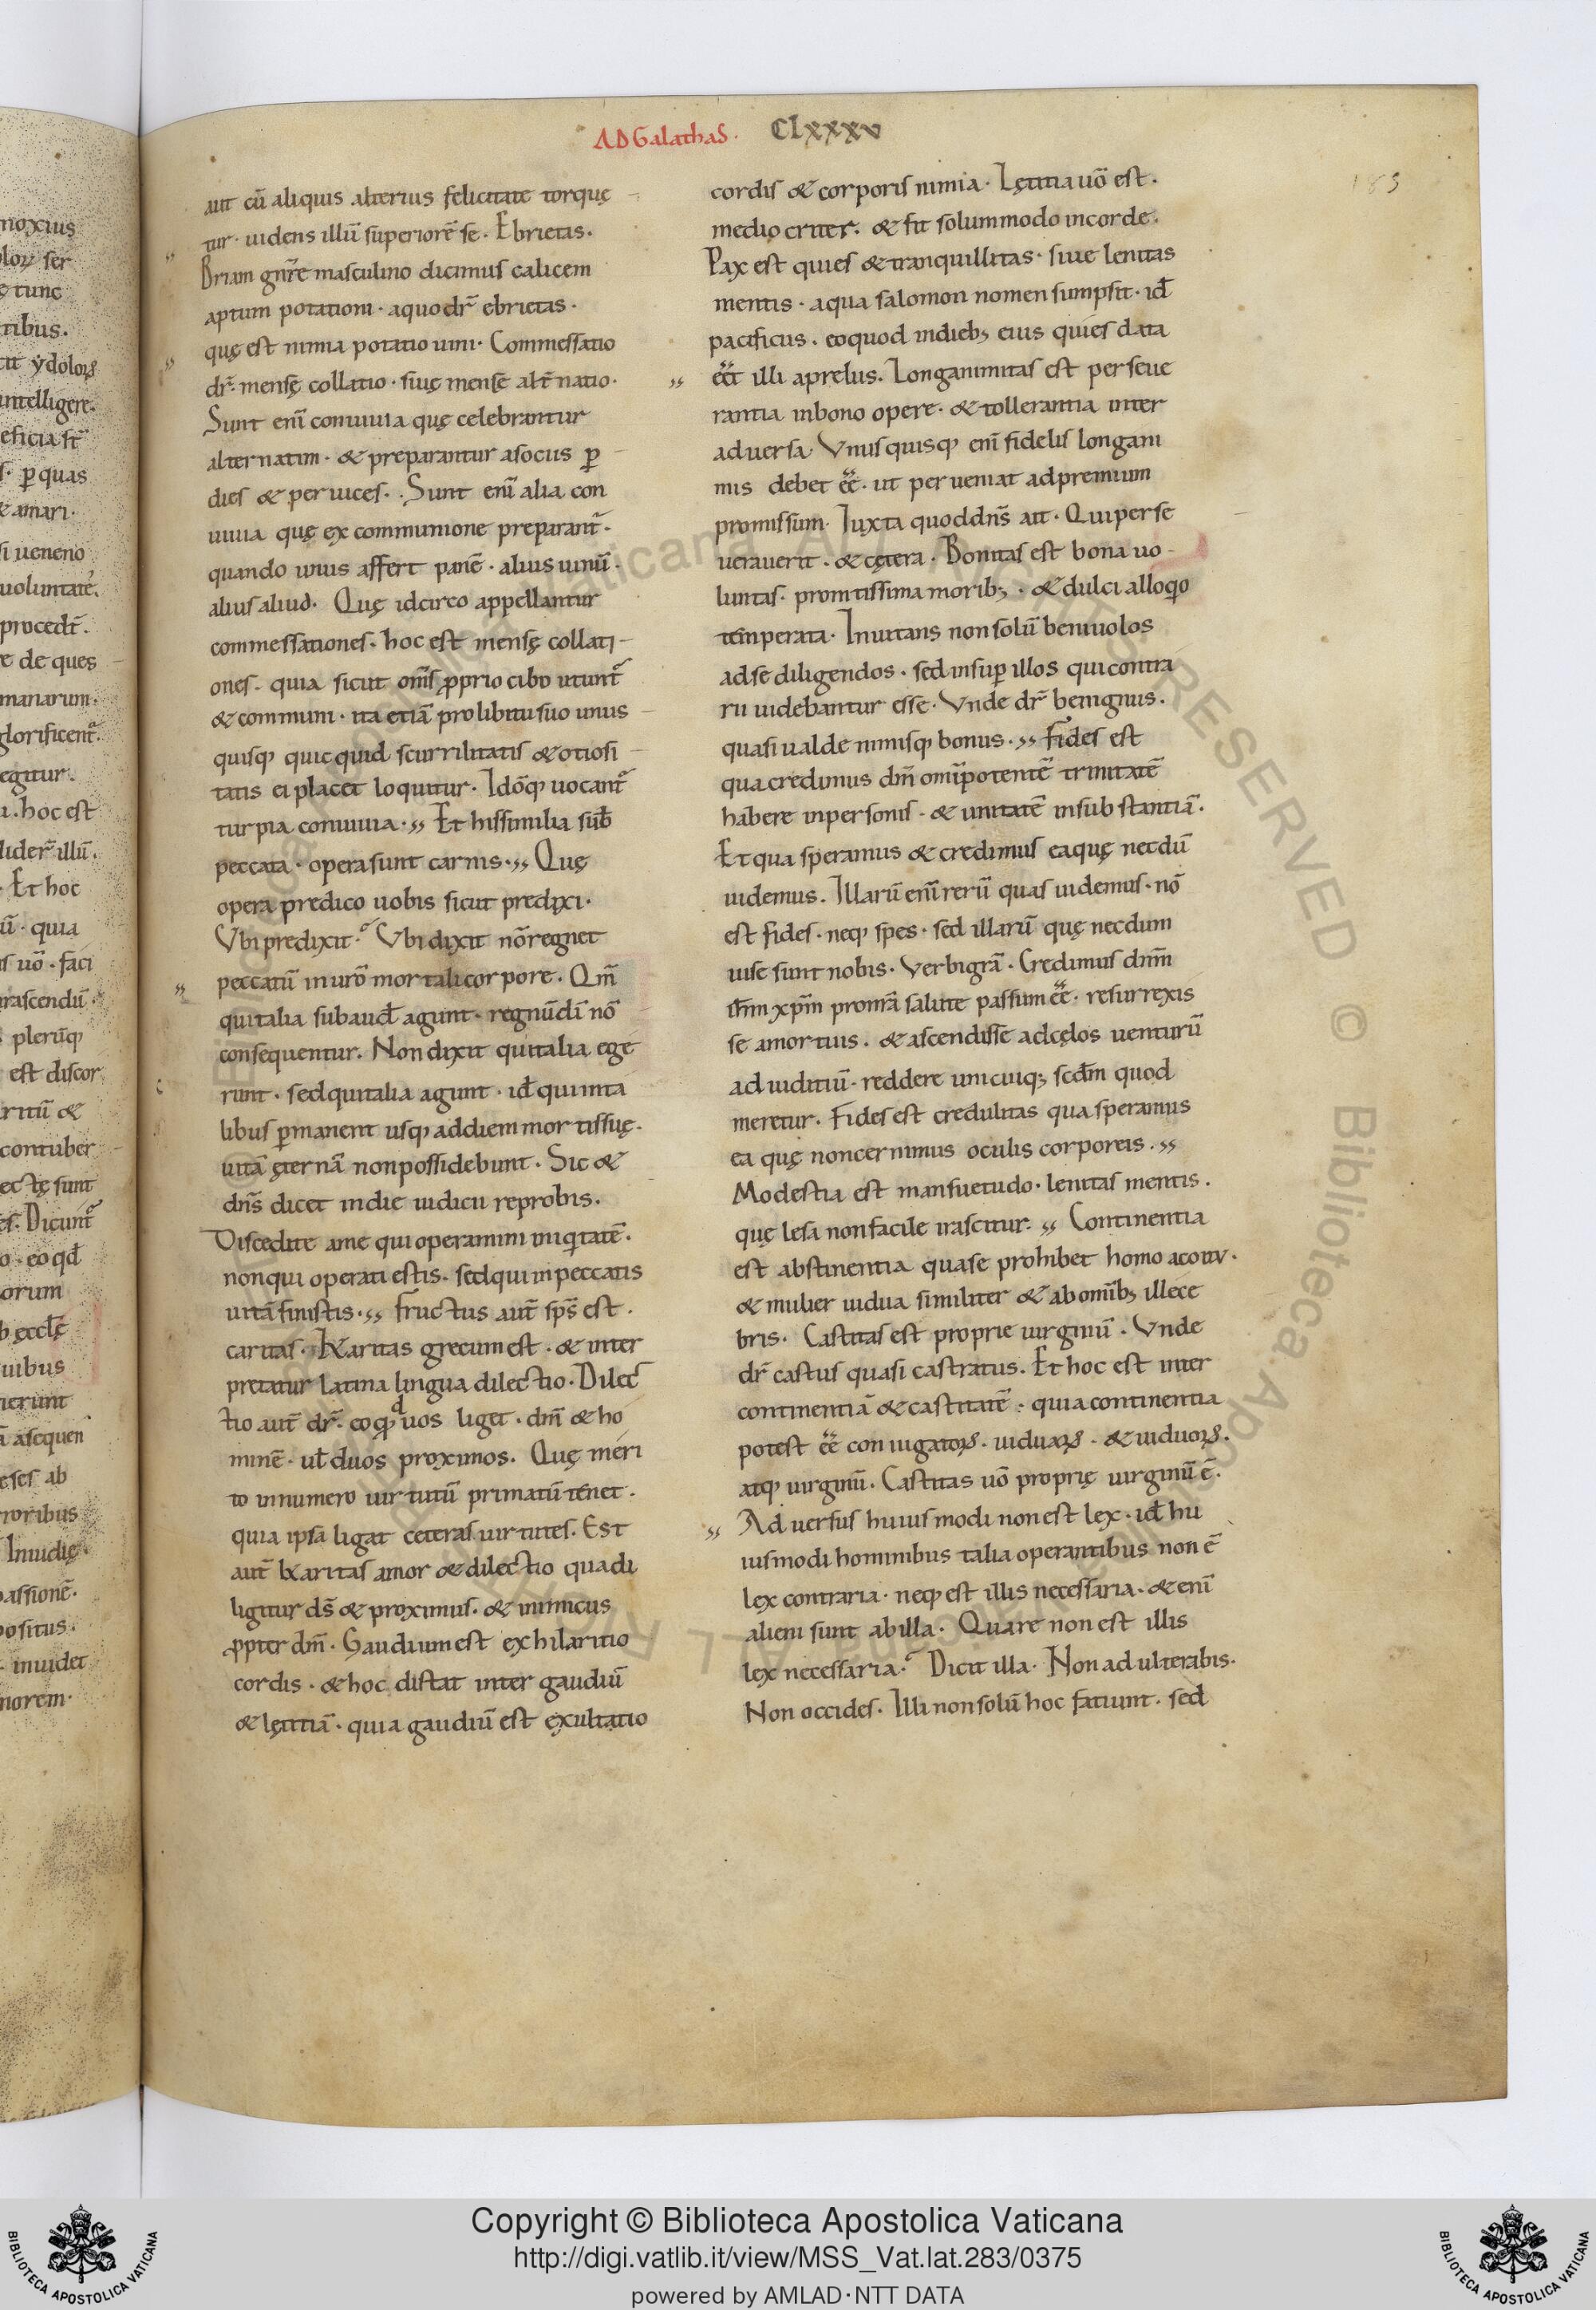 AD Galathas. CLxxxv
185
aut cū aliquis alterius felicitate torquę
tur · uidens illū superiorē se · Ebrietas.
Brium gnr̄e masculino dicimus calicem
aptum potationi · aquo dr̄ ebrietas ·
quę est nimia potatio uini · Commessatio
dr̄ · mensę collatio · siuę mensę alt̄natio ·
Sunt enī conuiuia quę celebrantur
alternatim · & preparantur asociis ꝑ
dies & per uices · Sunt enī alia con
uiuia quę ex communione preparant̄ ·
quando unus affert panē · alius uinū ·
alius aliud · Quę idcirco appellantur
commessationes · hoc est mensę collati-
ones · quia sicut om̄s ꝓprio cibo utunt̄
& communi · ita etiā prolibitu suo unus
quisq; quicquid scurrilitatis & otiosi
tatis ei placet loquitur · Idōq; uocant̄
turpia conuiuia · ,, Et his similia sub̄
peccata · opera sunt carnis · ,, Quę
opera predico uobis sicut predixi ·
Vbi predixit · Vbi dixit nō regnet
,, peccatū in urō mortali corpore · Qm̄
qui talia subaud̄ agunt · regnū dī nō
consequentur. Non dixit qui talia ege
runt · sed qui talia agunt · id̄ qui in ta
libus ꝑmanent usq; ad diem mortis suę ·
uitā ęternā non possidebunt · Sic &
dn̄s dicet in die iudicii reprobis ·
Discedite ame qui operamini iniqͥtatē ·
non qui operati estis · sed qui in peccatis
uitā finistis · ,, fructus aut̄ sp̄s est ·
caritas · Karitas grecum est · & inter
pretatur latina lingua dilectio · Dilec
tio aut̄ dr̄ · eo qd uos liget · dm̄ & ho
minē · ul̄ duos proximos · Quę meri
to in numero uirtutū primatū tenet ·
quia ipsa ligat ceteras uirtutes · Est
aut̄ karitas amor & dilectio qua di
ligitur ds̄ & proximus · & inimicus
ꝓpter dm̄ · Gaudium est exhilaritio
cordis · & hoc distat inter gaudiū
& lętitiā · quia gaudiū est exultatio
cordis & corporis nimia · Lętitia uō est ·
mediocriter · & fit solummodo in corde ·
Pax est quies & tranquillitas · siue lenitas
mentis · aqua salomon nomen sumpsit · id̄
pacificus · eo quod in dieb; eius quies data
,, eēt illi aprelus · Longanimitas est perseue
rantia in bono opere · & tollerantia inter
aduersa · Vnusquisq; enī fidelis longani
mis debet eē · ut perueniat ad premium
promissum · Iuxta quod dn̄s ait · Qui perse
uerauerit · & cętera · Bonitas est bona uo-
luntas · promtissima morib; · & dulci alloqͦo
temperata · Inuitans non solū beniuolos
ad se diligendos · sed insuꝑ illos qui contra
rii uidebantur esse · Vnde dr̄ benignus ·
quasi ualde nimisq; bonus · ,, Fides est
qua credimus dm̄ omīpotentē trinitatē
habere in personis · & unitatē in substantiā ·
Et qua speramus & credimus ea quę necdū
uidemus · Illarū enī rerū quas uidemus · nō
est fides · neq; spes · sed illarū quę necdum
uise sunt nobis · Verbi grā · Credimus dnm̄
ih̄m xp̄m pro nr̄a salute passum eē · resurrexis
se a mortuis · & ascendisse ad cęlos uenturū
ad iuditiū · reddere unicuiq; scd̄m quod
meretur · Fides est credulitas qua speramus
ea quę non cernimus oculis corporeis · ,,
Modestia est mansuetudo · lenitas mentis ·
quę lesa non facile irascitur · ,, Continentia
est abstinentia qua se prohibet homo a coitu ·
& mulier uidua similiter & ab omīb; illece
bris · Castitas est proprie uirginū · Vnde
dr̄ castus quasi castratus · Et hoc est inter
continentiā & castitatē · quia continentia
potest eē coniugatoꝝ · uiduaꝝ · & uiduoꝝ ·
atq; uirginū · Castitas uō proprię uirginū ē ·
,, Aduersus huiusmodi non est lex · id̄ hu
iusmodi hominibus talia operantibus non ē
lex contraria · neq; est illis necessaria · & enī
alieni sunt ab illa · Quare non est illis
lex necessaria · Dicit illa · Non adulterabis ·
Non occides · Illi non solū hoc fatiunt · sed
Copyright © Biblioteca Apostolica Vaticana
http://digi.vatlib.it/view/MSS_Vat.lat.283/0375
powered by AMLAD·NTT DATA
BIBLIOTECA APOSTOLICA VATICANA
BIBLIOTECA APOSTOLICA VATICANA